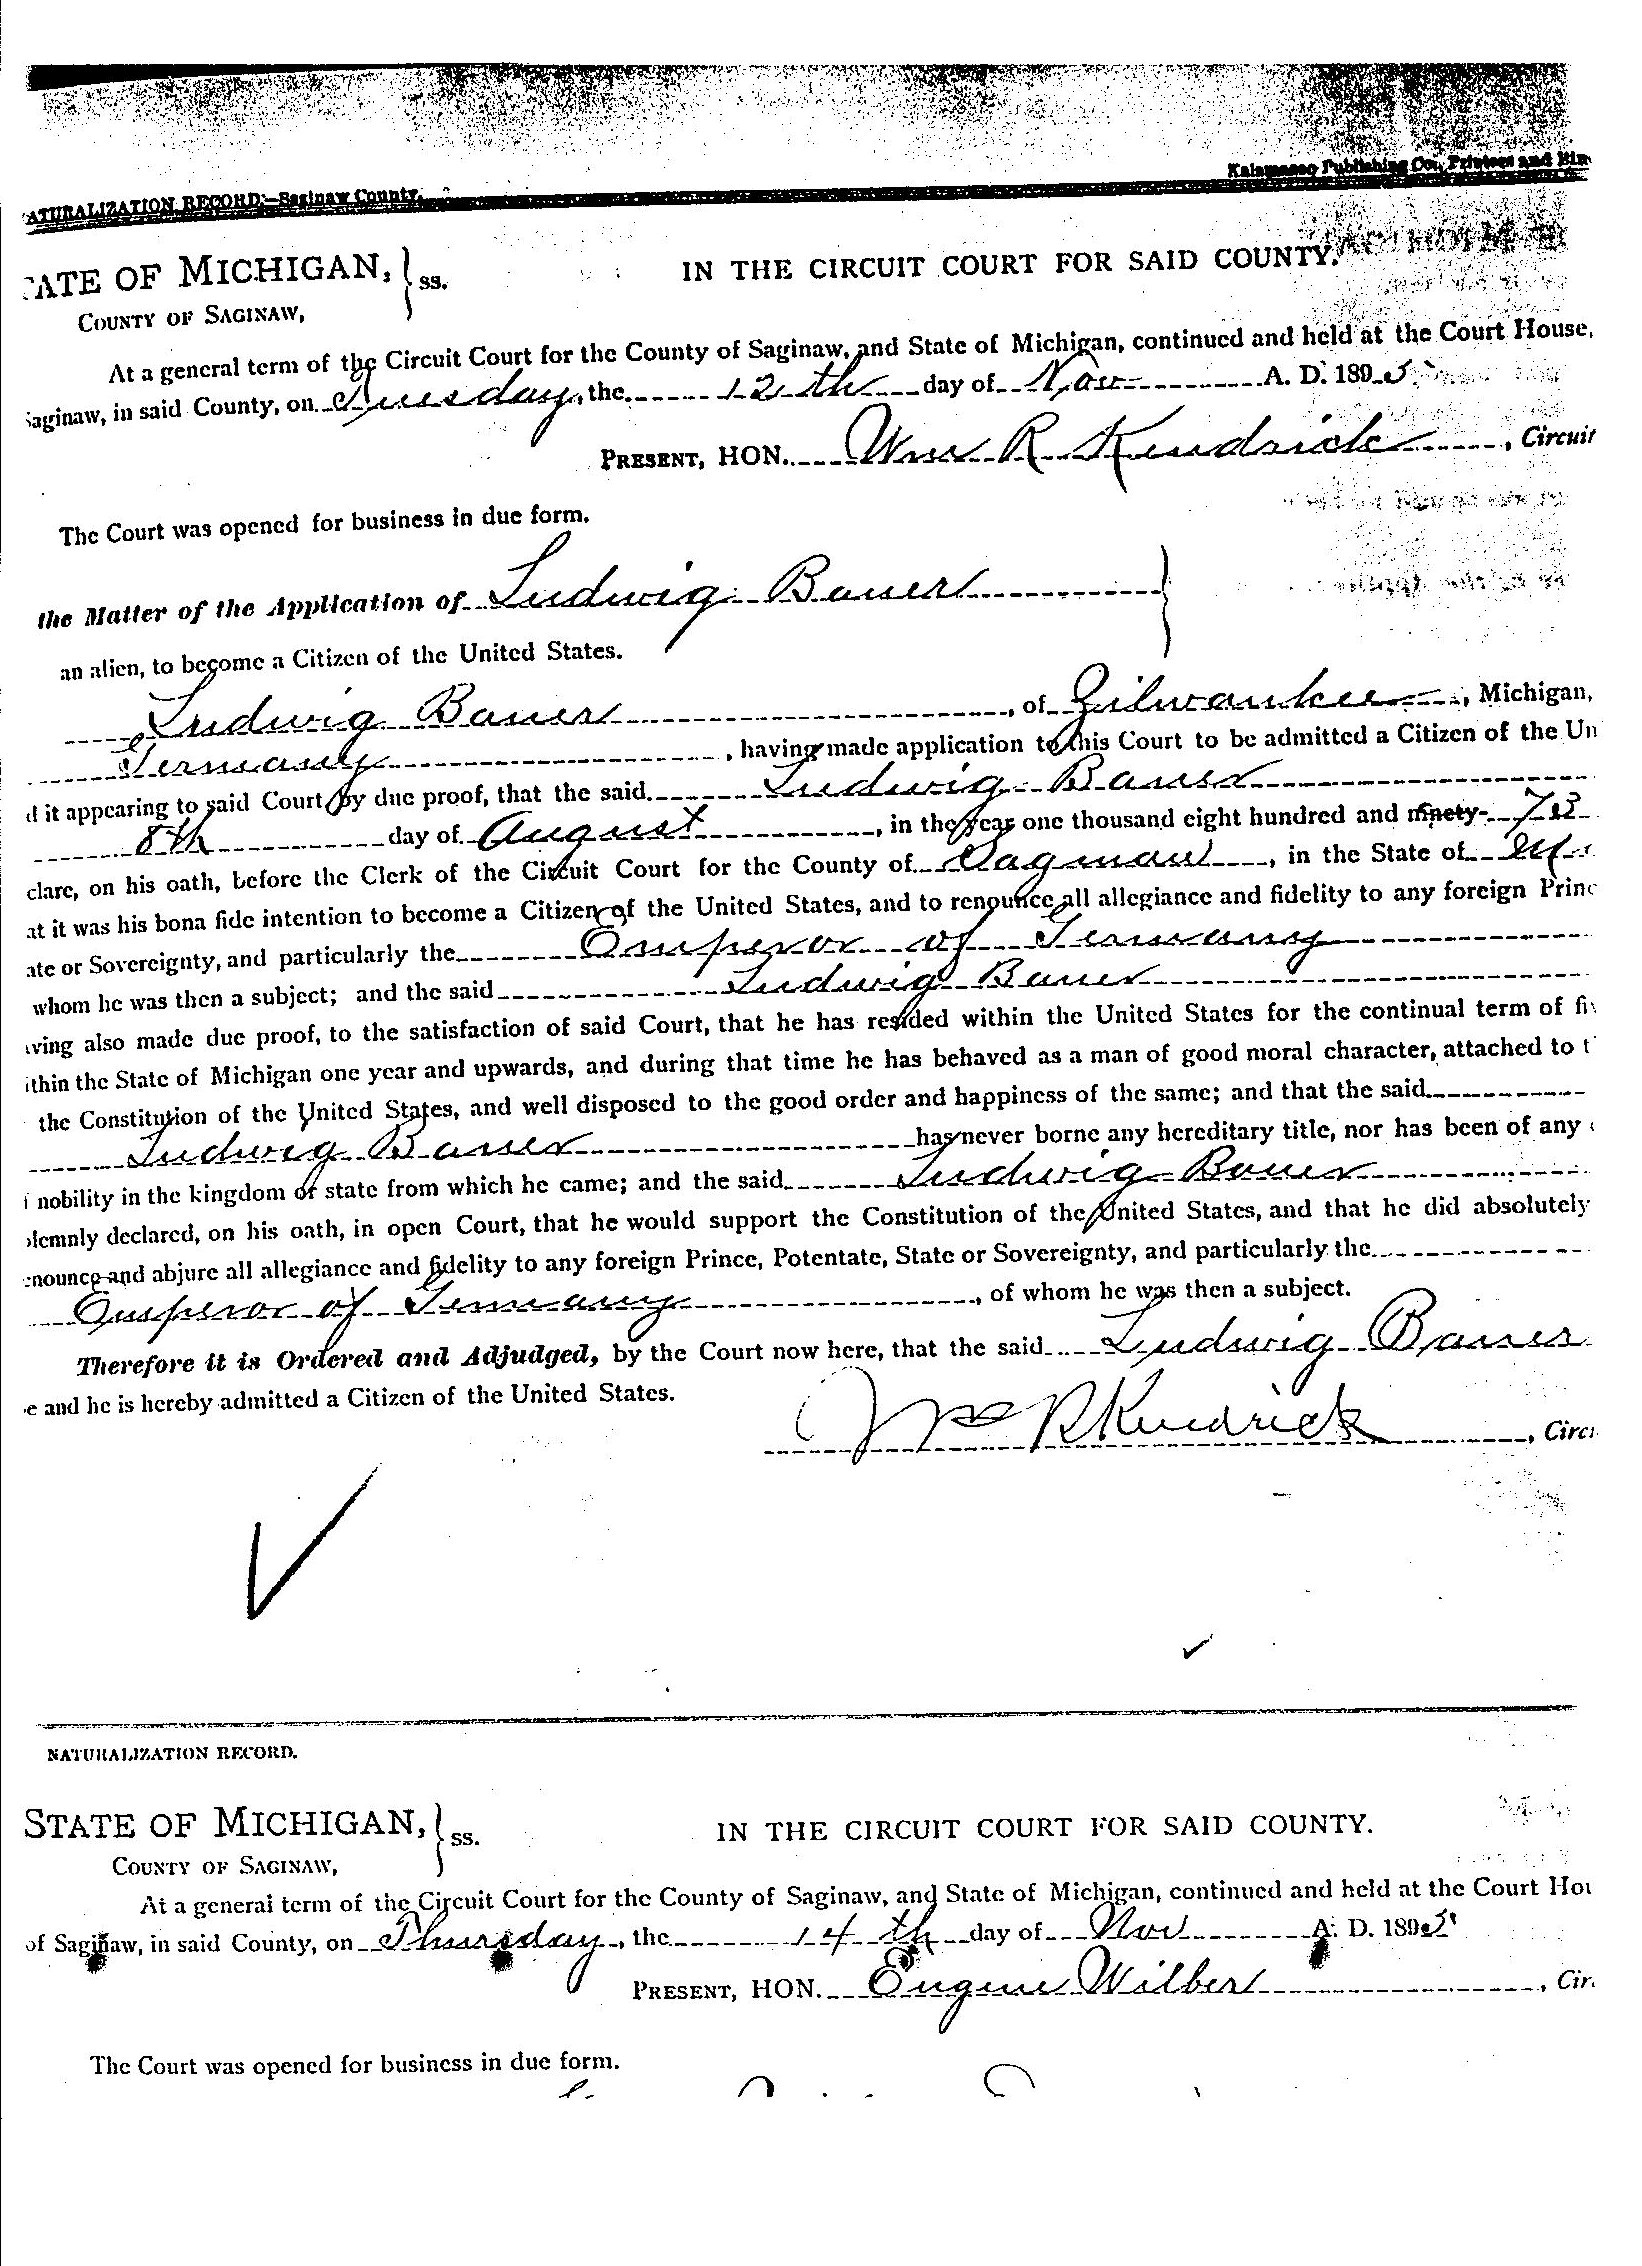 Kalamazoo Publishing Co., Printers and Bin
ATURALIZATION RECORD.—Saginaw County.
TATE OF MICHIGAN, } ss.
IN THE CIRCUIT COURT FOR SAID COUNTY.
COUNTY OF SAGINAW,
At a general term of the Circuit Court for the County of Saginaw, and State of Michigan, continued and held at the Court House,
Saginaw, in said County, on Tuesday, the 12th day of Nov A. D. 1895
PRESENT, HON. Wm R Kendrick, Circuit
The Court was opened for business in due form.
the Matter of the Application of Ludwig Bauer
an alien, to become a Citizen of the United States.
Ludwig Bauer, of Zilwaukee, Michigan,
Germany, having made application to this Court to be admitted a Citizen of the Un
d it appearing to said Court by due proof, that the said Ludwig Bauer
8th day of August, in the year one thousand eight hundred and ninety-
clare, on his oath, before the Clerk of the Circuit Court for the County of Saginaw, in the State of
at it was his bona fide intention to become a Citizen of the United States, and to renounce all allegiance and fidelity to any foreign Princ
ate or Sovereignty, and particularly the Emperor of Germany
whom he was then a subject; and the said Ludwig Bauer
ving also made due proof, to the satisfaction of said Court, that he has resided within the United States for the continual term of fiv
ithin the State of Michigan one year and upwards, and during that time he has behaved as a man of good moral character, attached to t
the Constitution of the United States, and well disposed to the good order and happiness of the same; and that the said
Ludwig Bauer has never borne any hereditary title, nor has been of any
f nobility in the kingdom or state from which he came; and the said Ludwig Bauer
olemnly declared, on his oath, in open Court, that he would support the Constitution of the United States, and that he did absolutely
enounce and abjure all allegiance and fidelity to any foreign Prince, Potentate, State or Sovereignty, and particularly the
Emperor of Germany, of whom he was then a subject.
Therefore it is Ordered and Adjudged, by the Court now here, that the said Ludwig Bauer
e and he is hereby admitted a Citizen of the United States.
Wm R Kendrick, Circu
NATURALIZATION RECORD.
STATE OF MICHIGAN, } ss.
IN THE CIRCUIT COURT FOR SAID COUNTY.
COUNTY OF SAGINAW,
At a general term of the Circuit Court for the County of Saginaw, and State of Michigan, continued and held at the Court Hou
of Saginaw, in said County, on Thursday, the 14th day of Nov A. D. 1895
PRESENT, HON. Eugene Wilber, Circ
The Court was opened for business in due form.